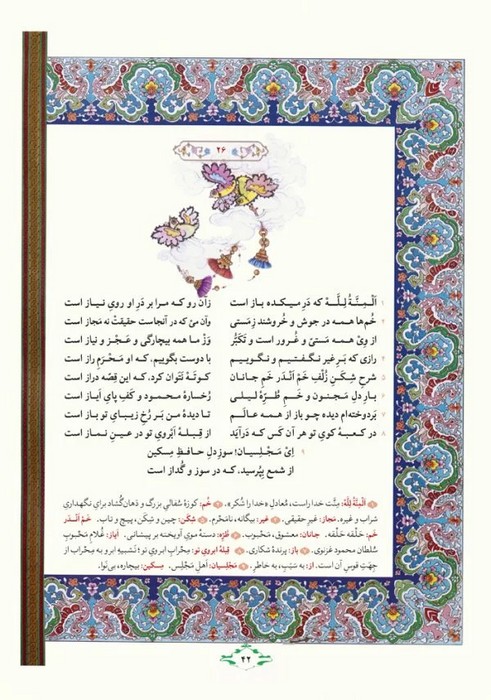 ۲۶
۱ اَلْمِنَّةُ لِلّٰه که دَرِ میکده باز است زان رو که مرا بر دَرِ او رویِ نیاز است
۲ خُم‌ها همه در جوش و خُروشند زِ مَستی وآن مِیْ که در آنجاست حقیقتْ نه مَجاز است
۳ از وِیْ همه مَستیّ و غُرور است و تَکَبُّر وَز ما همه بیچارگی و عَجْز و نیاز است
۴ رازی که بَرِ غیر نگفتیم و نگوییم با دوست بگوییم، که او مَحْرَمِ راز است
۵ شرحِ شِکَنِ زُلْفِ خَمْ اَنْدَر خَمِ جانان کوتَهْ نَتَوان کرد، که این قِصّه دراز است
۶ بارِ دلِ مجنون و خَمِ طُرّهٔ لیلی رُخسارهٔ محمود و کَفِ پایِ اَیاز است
۷ بَردوخته‌ام دیده چو باز از همه عالَم تا دیدهٔ من بَر رُخِ زیبایِ تو باز است
۸ در کعبهٔ کویِ تو هر آن کَس که دَرآیَد از قِبلهٔ اَبْرویِ تو در عینِ نماز است
۹ اِیْ مَجْلِسیان؛ سوزِ دلِ حافظِ مِسکین
از شمع بپُرسید، که در سوز و گُداز است
اَلْمِنَّةُ لِلّٰه: مِنَّت خدا راست، مُعادلِ «خدا را شُکر». خُم: کوزهٔ سُفالیِ بزرگ و دَهان‌گُشاد برای نگهداریِ
شراب و غیره. مَجاز: غیرِ حقیقی. غیر: بیگانه، نامَحْرَم. شِکَن: چین و شِکَن، پیچ و تاب. خَمْ اَنْدَر
خَم: حَلقه حَلقه. جانان: معشوق، مَحْبوب. طُرّه: دستهٔ مویِ آویخته بر پیشانی. اَیاز: غُلامِ مَحْبوبِ
سُلطان محمود غزنوی. باز: پرندهٔ شکاری. قبلهٔ ابرویِ تو: مِحْرابِ ابرویِ تو؛ تَشبیهِ ابرو به مِحْراب از
جِهَتِ قوسِ آن است. از: به سَبَبِ، به خاطرِ. مَجْلِسیان: اَهلِ مَجْلِس. مِسکین: بیچاره، بی‌نوا.
۴۲